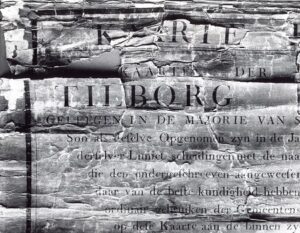 KAARTE
KAARTEN DER
TILBORG
GELEGEN IN DE MAJORIE VAN S
Soo als deselve Opgenomen zyn in de J
derselver Limiet scheidingen met de naa
die den ondergeschreven aangeweesen
naar van de beste kundigheid hebben
ordinair gebruiken der Gemeenten
op dese Kaarte aan de binnen zy